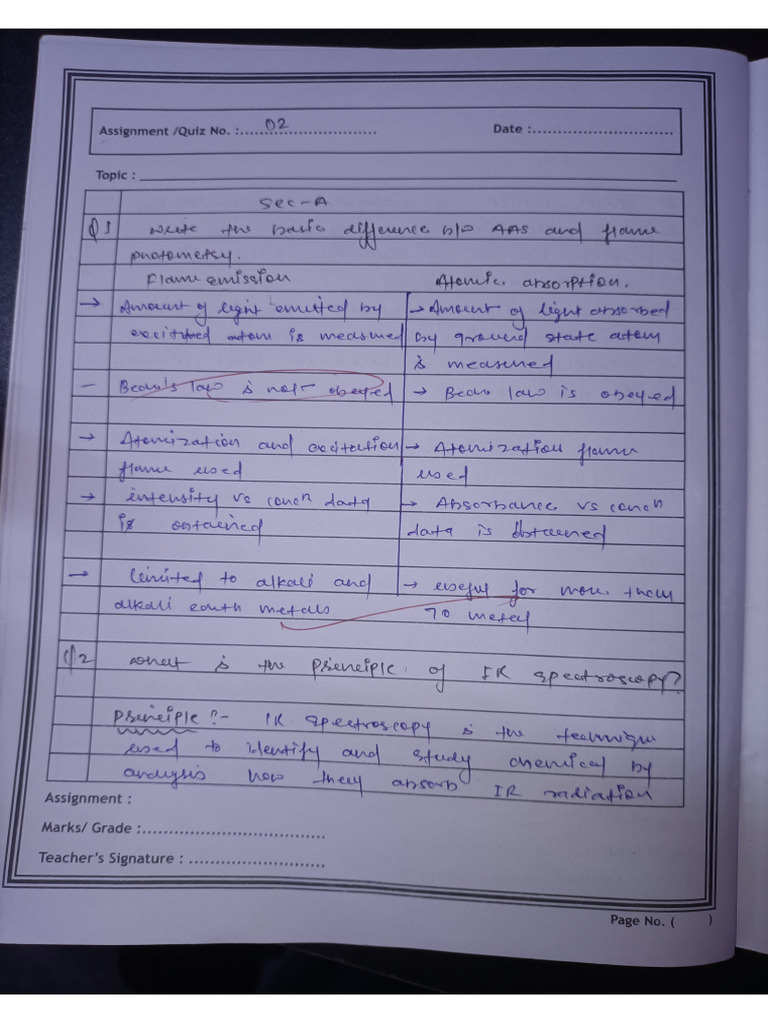 Assignment /Quiz No. :..... 02 ..........................
Date :..............................
Topic : ____________________
Sec-A
Q1 Write the basic difference b/w AAS and flame
photometry.
Flame emission
Atomic absorption.
→ Amount of light emitted by
excitured atom is measured
→ Amount of light absorbed
by ground state atom
is measured
– Bear's law is not obeyed
→ Bear law is obeyed
→ Atomization and excitation
flame used
→ Atomization flame
used
→ intensity vs concn data
is obtained
→ Absorbance vs concn
data is obtained
→ limited to alkali and
alkali earth metals
→ useful for more then
70 metal
Q2 What is the Principle of IR spectroscopy?
Principle :- IR spectroscopy is the technique
used to identify and study chemical by
analysis how they absorb IR radiation
Assignment :
Marks/ Grade :..................................
Teacher's Signature : .........................
Page No. ( )